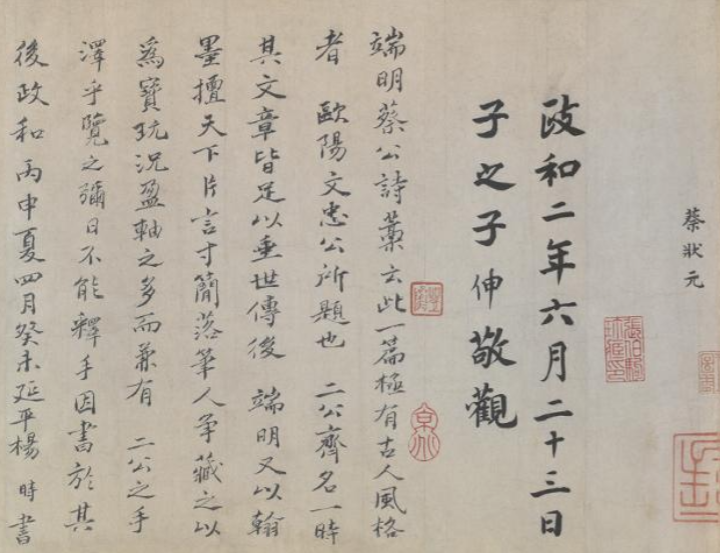 蔡狀元
政和二年六月二十三日
子之子伸敬觀
端明蔡公詩藁云此一篇極有古人風格
者 歐陽文忠公所題也 二公齊名一時
其文章皆足以垂世傳後 端明又以翰
墨擅天下片言寸簡落筆人爭藏之以
爲寶玩況盈軸之多而兼有 二公之手
澤乎覽之彌日不能釋手因書於其
後政和丙申夏四月癸未延平楊 時書
張伯駒
珍藏印